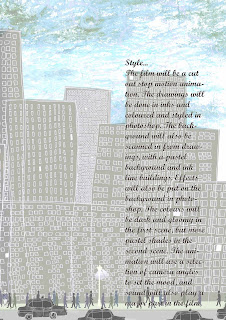 Style...
The film will be a cut
out stop motion anima-
tion. The drawings will
be done in inks and
coloured and styled in
photoshop. The back-
ground will also be
scanned in from draw-
ings, with a pastel
background and ink
line buildings. Effects
will also be put on the
background in photo-
shop. The colours will
be dark and gloomy in
the first scene, but more
pastel shades in the
second scene. The ani-
mation will use a selec-
tion of camera angles
to set the mood, and
sound will also play a
major part in the film.